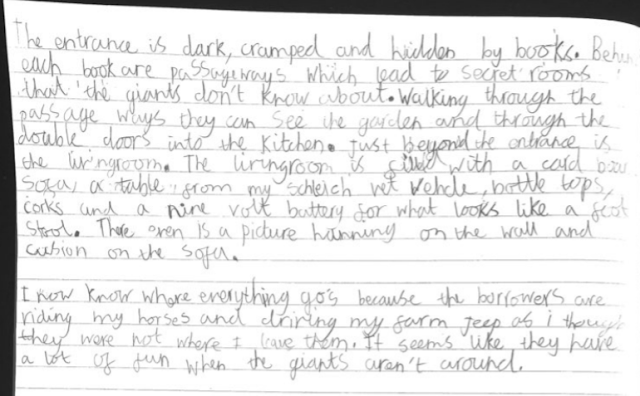 The entrance is dark, cramped and hidden by books. Behin
each book are passageways which lead to secret rooms
that the giants don't know about. Walking through the
passage ways they can see the garden and through the
double doors into the kitchen. Just beyond the entrance is
the livingroom. The livingroom is filled with a card boar
sofa, a table, from my schleich vet vehcle, bottle tops,
corks and a nine volt battery for what looks like a foot
stool. There even is a picture hanning on the wall and
cusion on the sofa.
I now know where everything go's because the borrowers are
riding my horses and driving my farm Jeep as i though
they were not where I leave them. It seems like they have
a lot of fun when the giants aren't around.